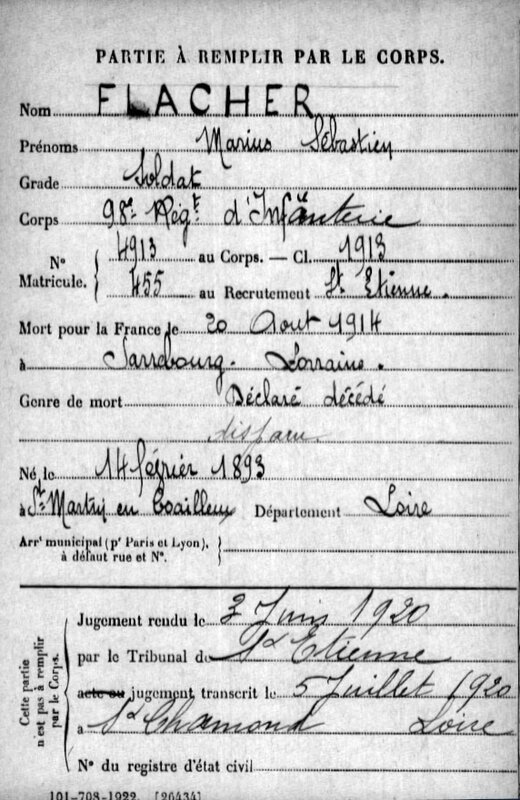 PARTIE À REMPLIR PAR LE CORPS.
Nom FLACHER
Prénoms Marius Sébastien
Grade Soldat
Corps 98e Régt d'Infanterie
N° Matricule. { 4913 au Corps. — Cl. 1913
455 au Recrutement St Etienne.
Mort pour la France le 20 Aout 1914
à Sarrebourg. Lorraine.
Genre de mort Déclaré décédé
disparu
Né le 14 février 1893
à St Martin en Coailleux Département Loire
Arrt municipal (pr Paris et Lyon),
à défaut rue et N°.
Cette partie n'est pas à remplir par le Corps.
Jugement rendu le 3 Juin 1920
par le Tribunal de St Etienne
acte ou jugement transcrit le 5 Juillet 1920
à St Chamond Loire
N° du registre d'état civil
101-708-1922. [26434]